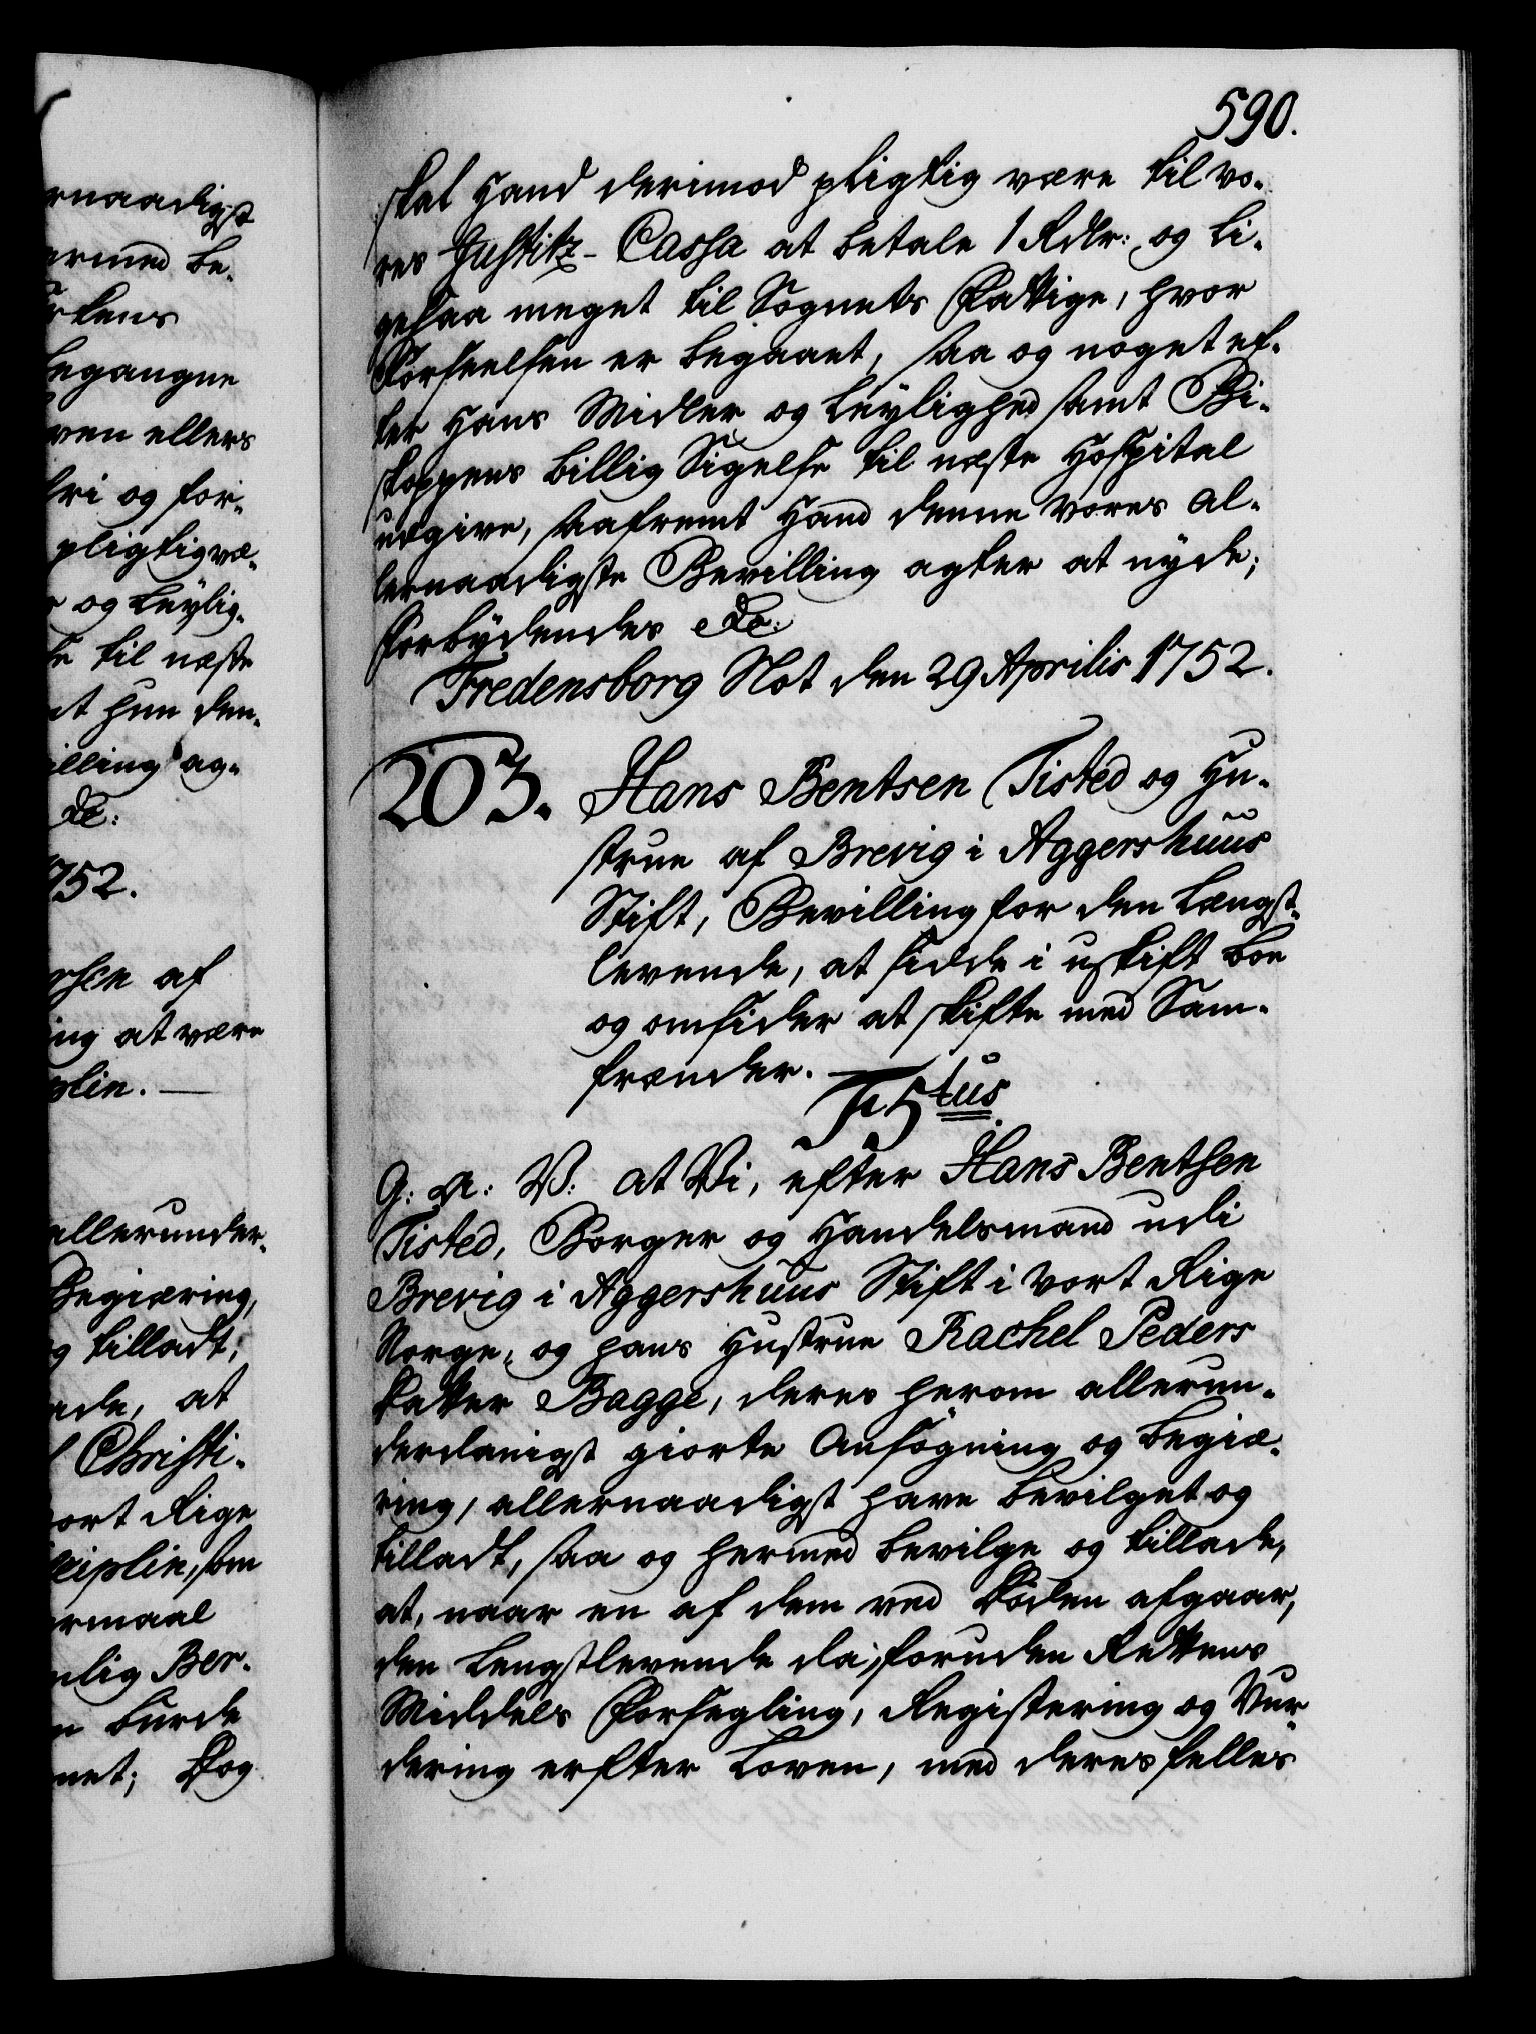 590.
skal hand derimod pligtig være til vo-
res Justitz-Cassa at betale 1 Rdlr: og li-
gesaa meget til Sognets Fattige, hvor
Forseelsen er begaaet, saa og noget ef-
ter hans Midler og Leylighed samt Bi-
skoppens billig Sigelse til næste Hospital
udgive, saafremt hand denne vores al-
lernaadigste Bevilling agter at nyde;
Forbydendes &c:
Fredensborg Slot den 29 Aprilis 1752.
203. Hans Bentsen Tisted og Hu-
strue af Brevig i Aggershuus
Stift, Bevilling for den Længst-
levende, at sidde i uskift Boe
og omsider at skifte med Sam-
frænder.
F 5tus
G: A: V: at Vi, efter Hans Bentsen
Tisted, Borger og Handelsmand udi
Brevig i Aggershuus Stift i vort Rige
Norge, og hans Hustrue Rachel Peders
Datter Bagge, deres herom allerun-
derdanigst giorte Ansøgning og Begiæ-
ring, allernaadigst have bevilget og
tilladt, saa og hermed bevilge og tillade,
at, naar en af dem ved Døden afgaar,
den Lengstlevende da, foruden Rettens
Middels Forsegling, Registering og Vur-
dering erfter Loven, med deres felles
ernaadigst
ermed be-
rkens
begangne
ven ellers
fri og for-
pligtig væ-
r og Leylig-
se til næste
at hun den-
illing ag-
&c:
752.
rsen af
ing at være
plin.
allerunder-
Begiæring,
g tilladt;
ade, at
l Christi-
vort Rige
ciplin, som
ermaal
nlig Ber-
n burde
net; Dog